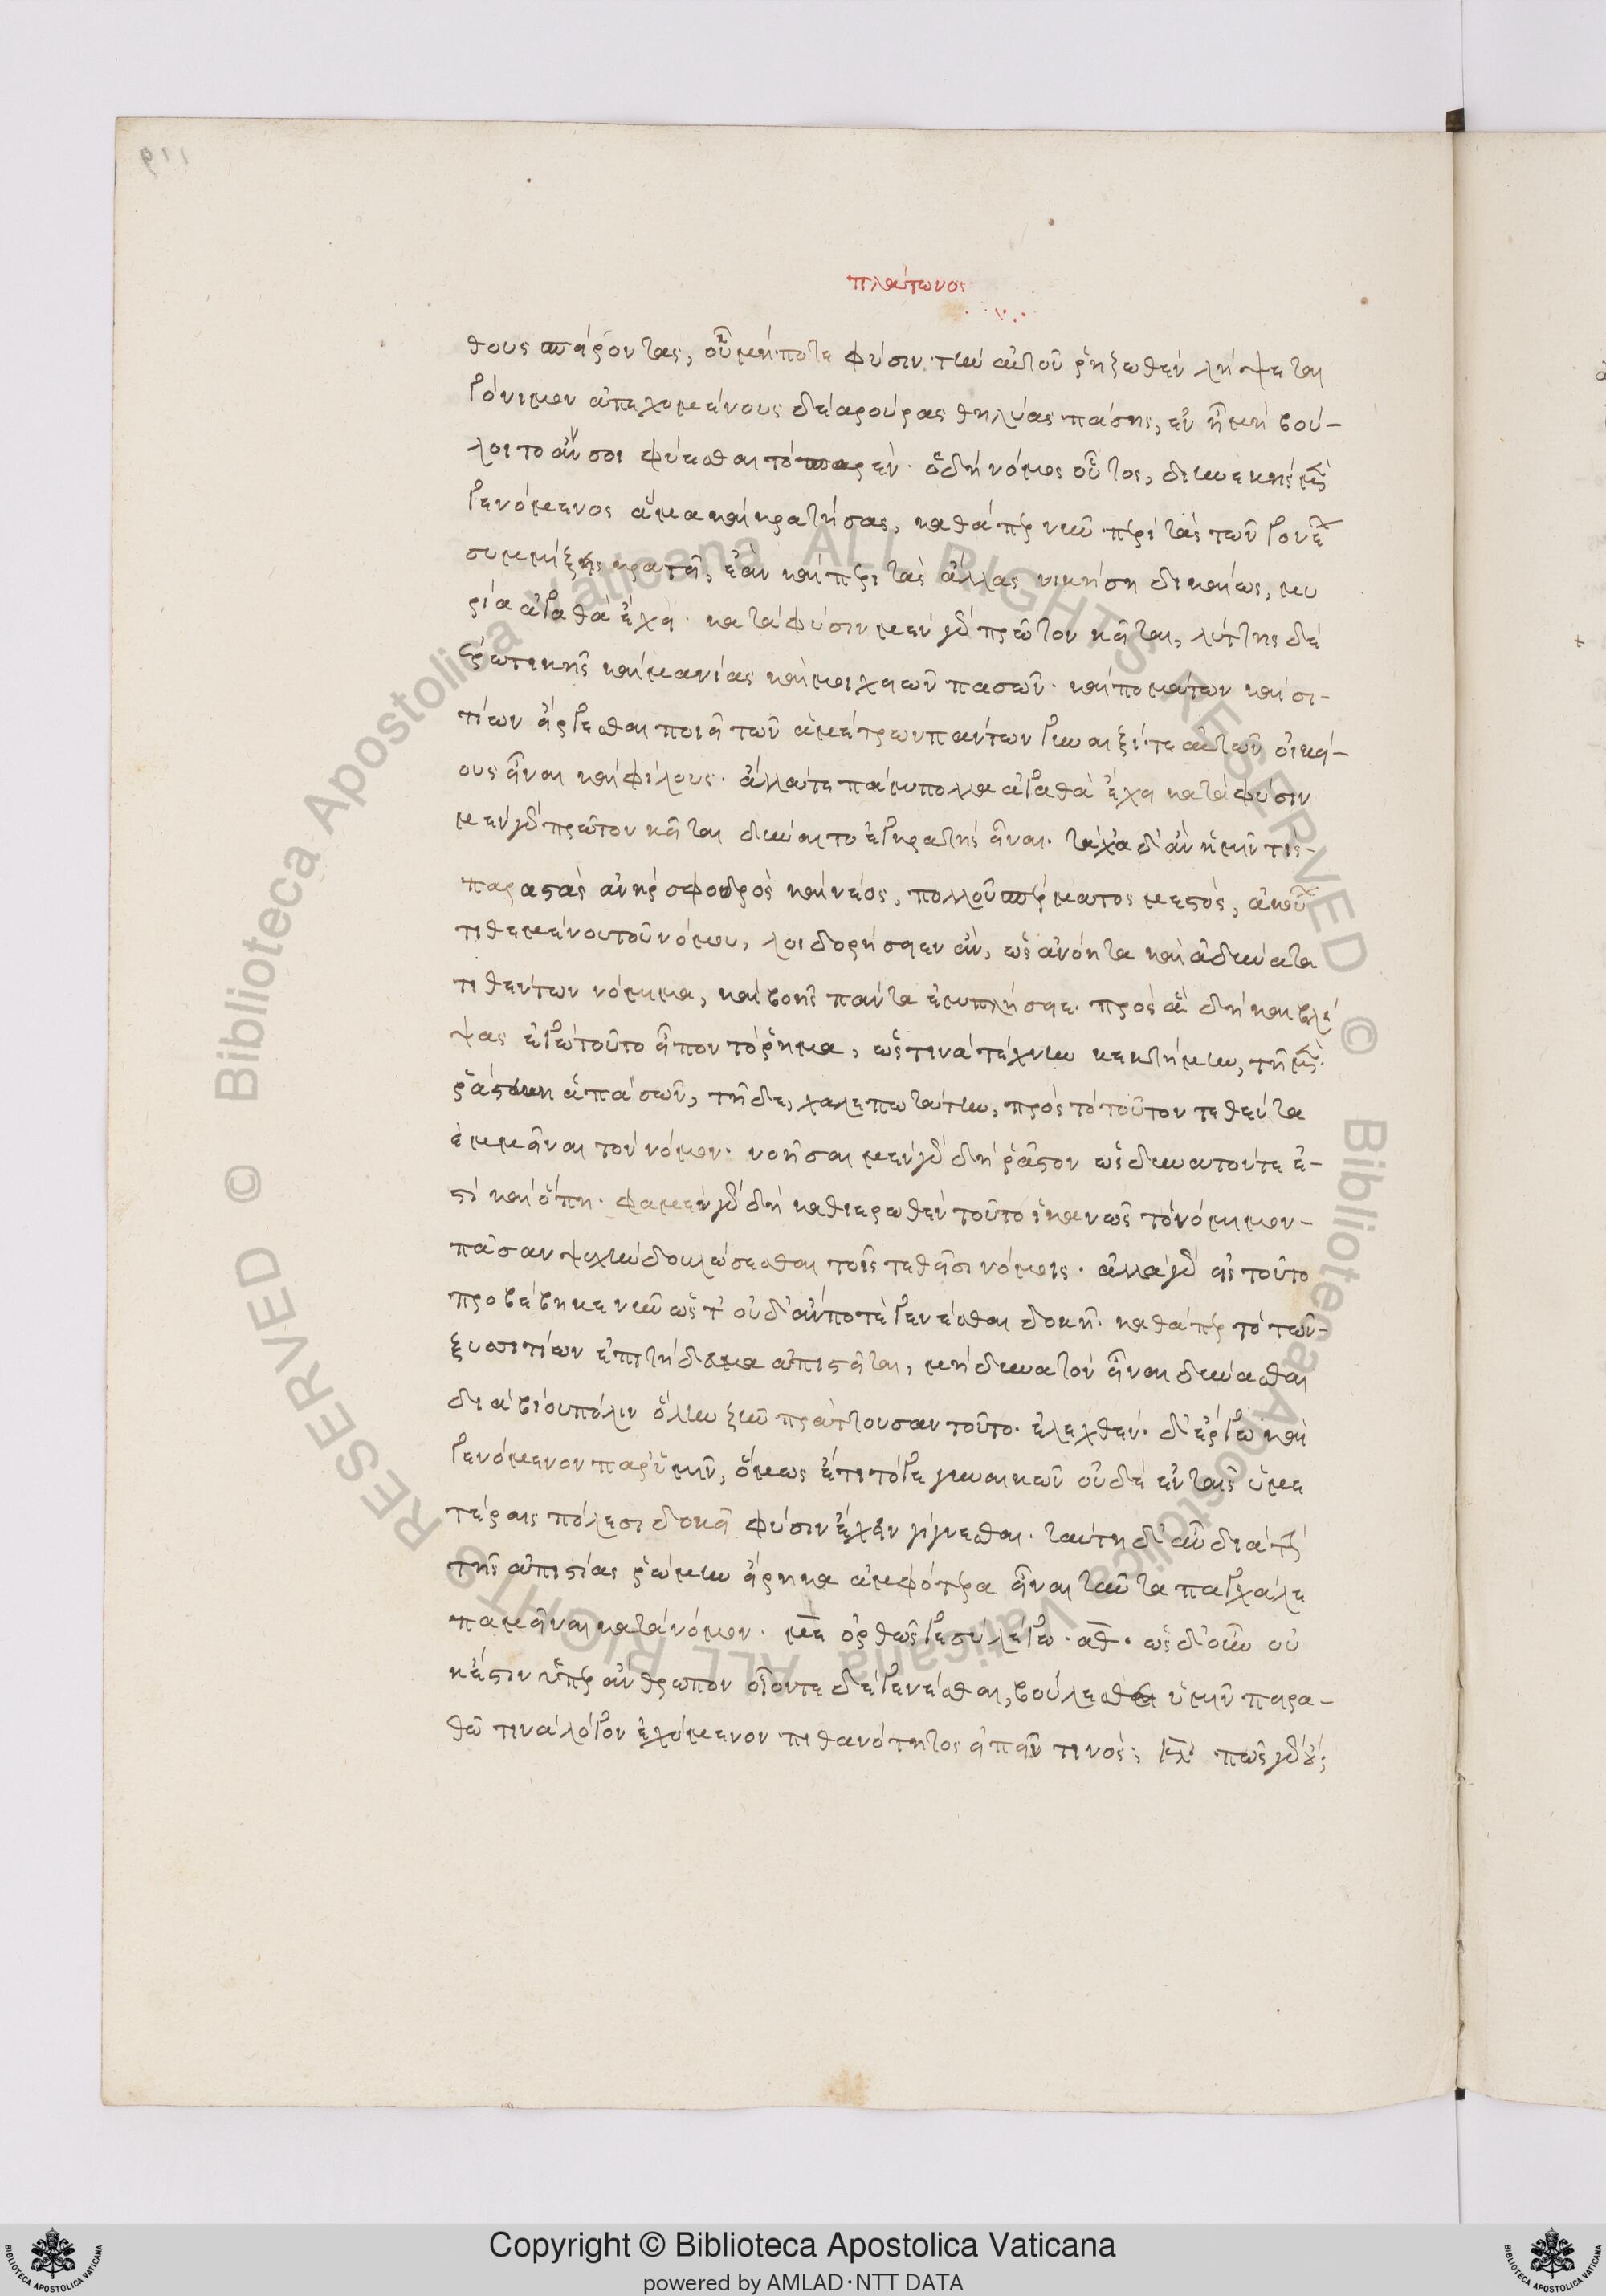 πλάτωνος
θους σπείροντας, οὗ μήποτε φύσιν τὴν αὑτοῦ ῥιζωθὲν λήψεται
γόνιμον ἀπεχομένους δὲ ἀρούρας θηλείας πάσης, ἐν ᾗ μὴ βού-
λοιτο ἄν σοι φύεσθαι τὸ σπαρέν. ὁ δὴ νόμος οὗτος, διηνεκὴς μὲν
γενόμενος ἅμα καὶ κρατήσας, καθάπερ νῦν περὶ τὰς τῶν γονέων
συμμίξεις κρατεῖ, ἐὰν καὶ περὶ τὰς ἄλλας νικήσῃ δικαίως, μυ
ρία ἀγαθὰ ἔχει. κατὰ φύσιν μὲν γὰρ πρῶτον κεῖται, λύττης δὲ
ἐρωτικῆς καὶ μανίας καὶ μοιχειῶν πασῶν. καὶ πομάτων καὶ σι-
τίων εἴργεσθαι ποιεῖ τῶν ἀμέτρων πάντων γυναιξί τε αὐτῶν οἰκεί-
ους εἶναι καὶ φίλους. ἄλλα τε πάμπολλα ἀγαθὰ ἔχει κατὰ φύσιν
μὲν γὰρ πρῶτον κεῖται δύναιτο ἐγκρατὴς εἶναι. τάχα δ' ἂν ἡμῖν τις-
παραστὰς ἀνὴρ σφοδρὸς καὶ νέος, πολλοῦ σπέρματος μεστὸς, ἀκούων
τιθεμένου τοῦ νόμου, λοιδορήσειεν ἂν, ὡς ἀνόητα καὶ ἀδύνατα
τιθέντων νόμιμα, καὶ βοῆς πάντα ἐμπλήσειε. πρὸς ἃ δὴ καὶ βλέ
ψας ἐγὼ τοῦτο εἶπον τὸ ῥῆμα, ὥς τινα τέχνην κεκτήμην, τῇ μὲν
ῥᾴστην ἁπασῶν, τῇ δὲ, χαλεπωτάτην, πρὸς τὸ τοῦτον τεθέντα
ἐμμεῖναι τὸν νόμον. νοῆσαι μὲν γὰρ δὴ ῥᾷστον ὡς δυνατόν τε ἐ-
στὶ καὶ ὅπῃ. φαμὲν γὰρ δὴ καθιερωθὲν τοῦτο ἱκανῶς τὸ νόμιμον-
πᾶσαν ψυχὴν δουλώσεσθαι τοῖς τεθεῖσι νόμοις. ἀλλὰ γὰρ εἰς τοῦτο
προβέβηκε νῦν ὥστ' οὐδ' ἄν ποτε γενέσθαι δοκῇ. καθάπερ τὸ τῶν-
ξυσσιτίων ἐπιτήδευμα ἀπιστεῖται, μὴ δυνατὸν εἶναι δύνασθαι
διὰ βίου πόλιν ὅλην ζῆν πράττουσαν τοῦτο. ἐλεχθὲν. δ' ἔργῳ καὶ
γενόμενον παρ' ὑμῖν, ὅμως ἔτι τό γε γυναικῶν οὐδὲ ἐν ταῖς ὑμε
τέραις πόλεσι δοκεῖ φύσιν ἔχειν γίγνεσθαι. ταύτῃ δ' αὖ διὰ τὴν
τῆς ἀπιστίας ῥώμην εἴρηκα ἀμφότερα εἶναι ταῦτα παγχάλε
πα μεῖναι κατὰ νόμον. με ὀρθῶς γε σὺ λέγω. αθ. ὡς δ' οὖν οὐ
κ ἔστιν ὑπὲρ ἄνθρωπον οἷόν τε δὲ γενέσθαι, βούλεσθαι ὑμῖν πειρα-
θῶ τινὰ λόγον ἐχόμενον πιθανότητος εἰπεῖν τινος; κλ πῶς γὰρ οὔ;